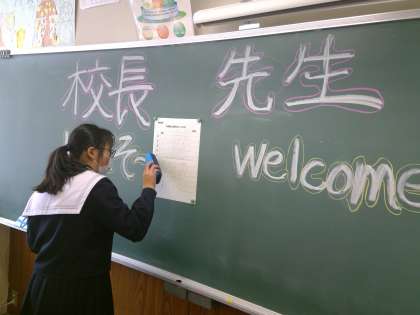 校長 先生
そ〜 welcome